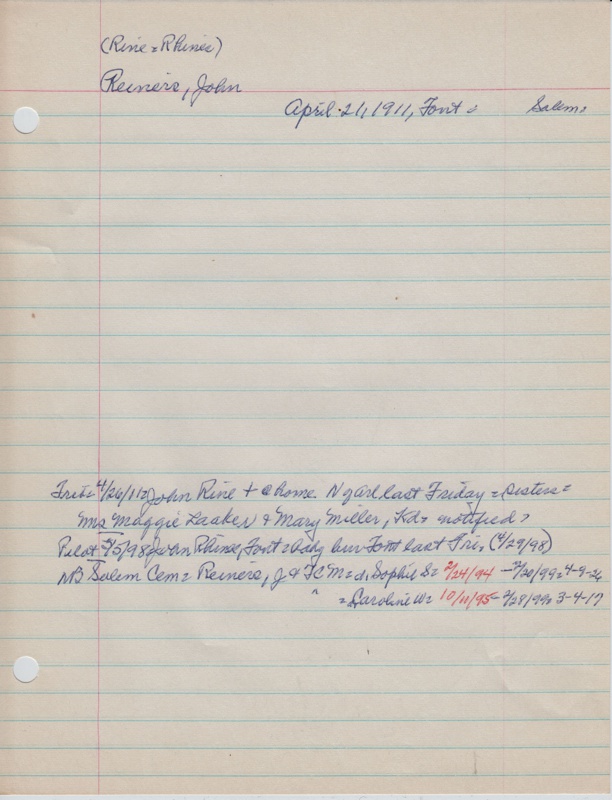 (Rine = Rhines)
Reiners, John
April 21, 1911, Font = Salem =
Trib = 4/26/11 = John Rine + @ home N of Arl last Friday = Sisters =
Mrs Maggie Laaker & Mary Miller, Kd = notified =
Pilot 5/5/98 John Rhines, Font = baby bur Font last Fri, (4/29/98)
NB Salem Cem = Reiners, J & F C M = d, Sophie S = 2/24/94 – 2/20/99 = 4-9-26
= Caroline W = 10/11/95 – 2/28/99 = 3-4-17